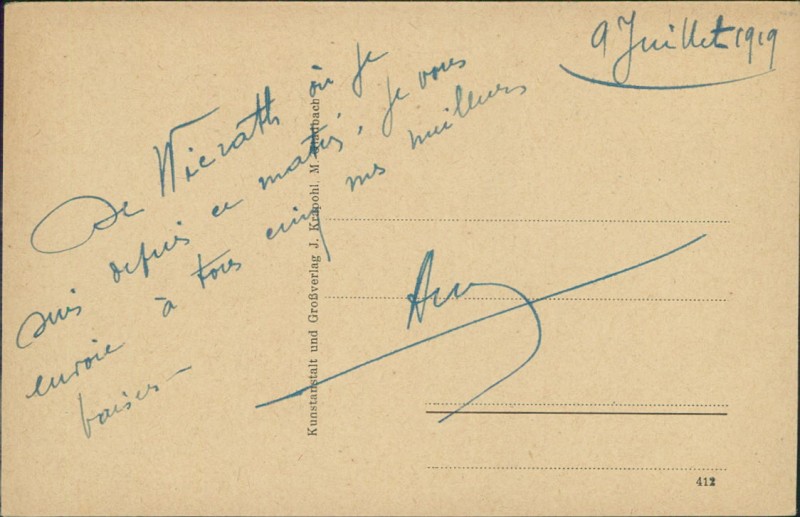 9 Juillet 1919
De Wicrath où je
suis depuis ce matin, je vous
envoie à tous cinq mes meilleurs
baisers -
Kunstanstalt und Großverlag J. Krapohl. M.-Gladbach
412